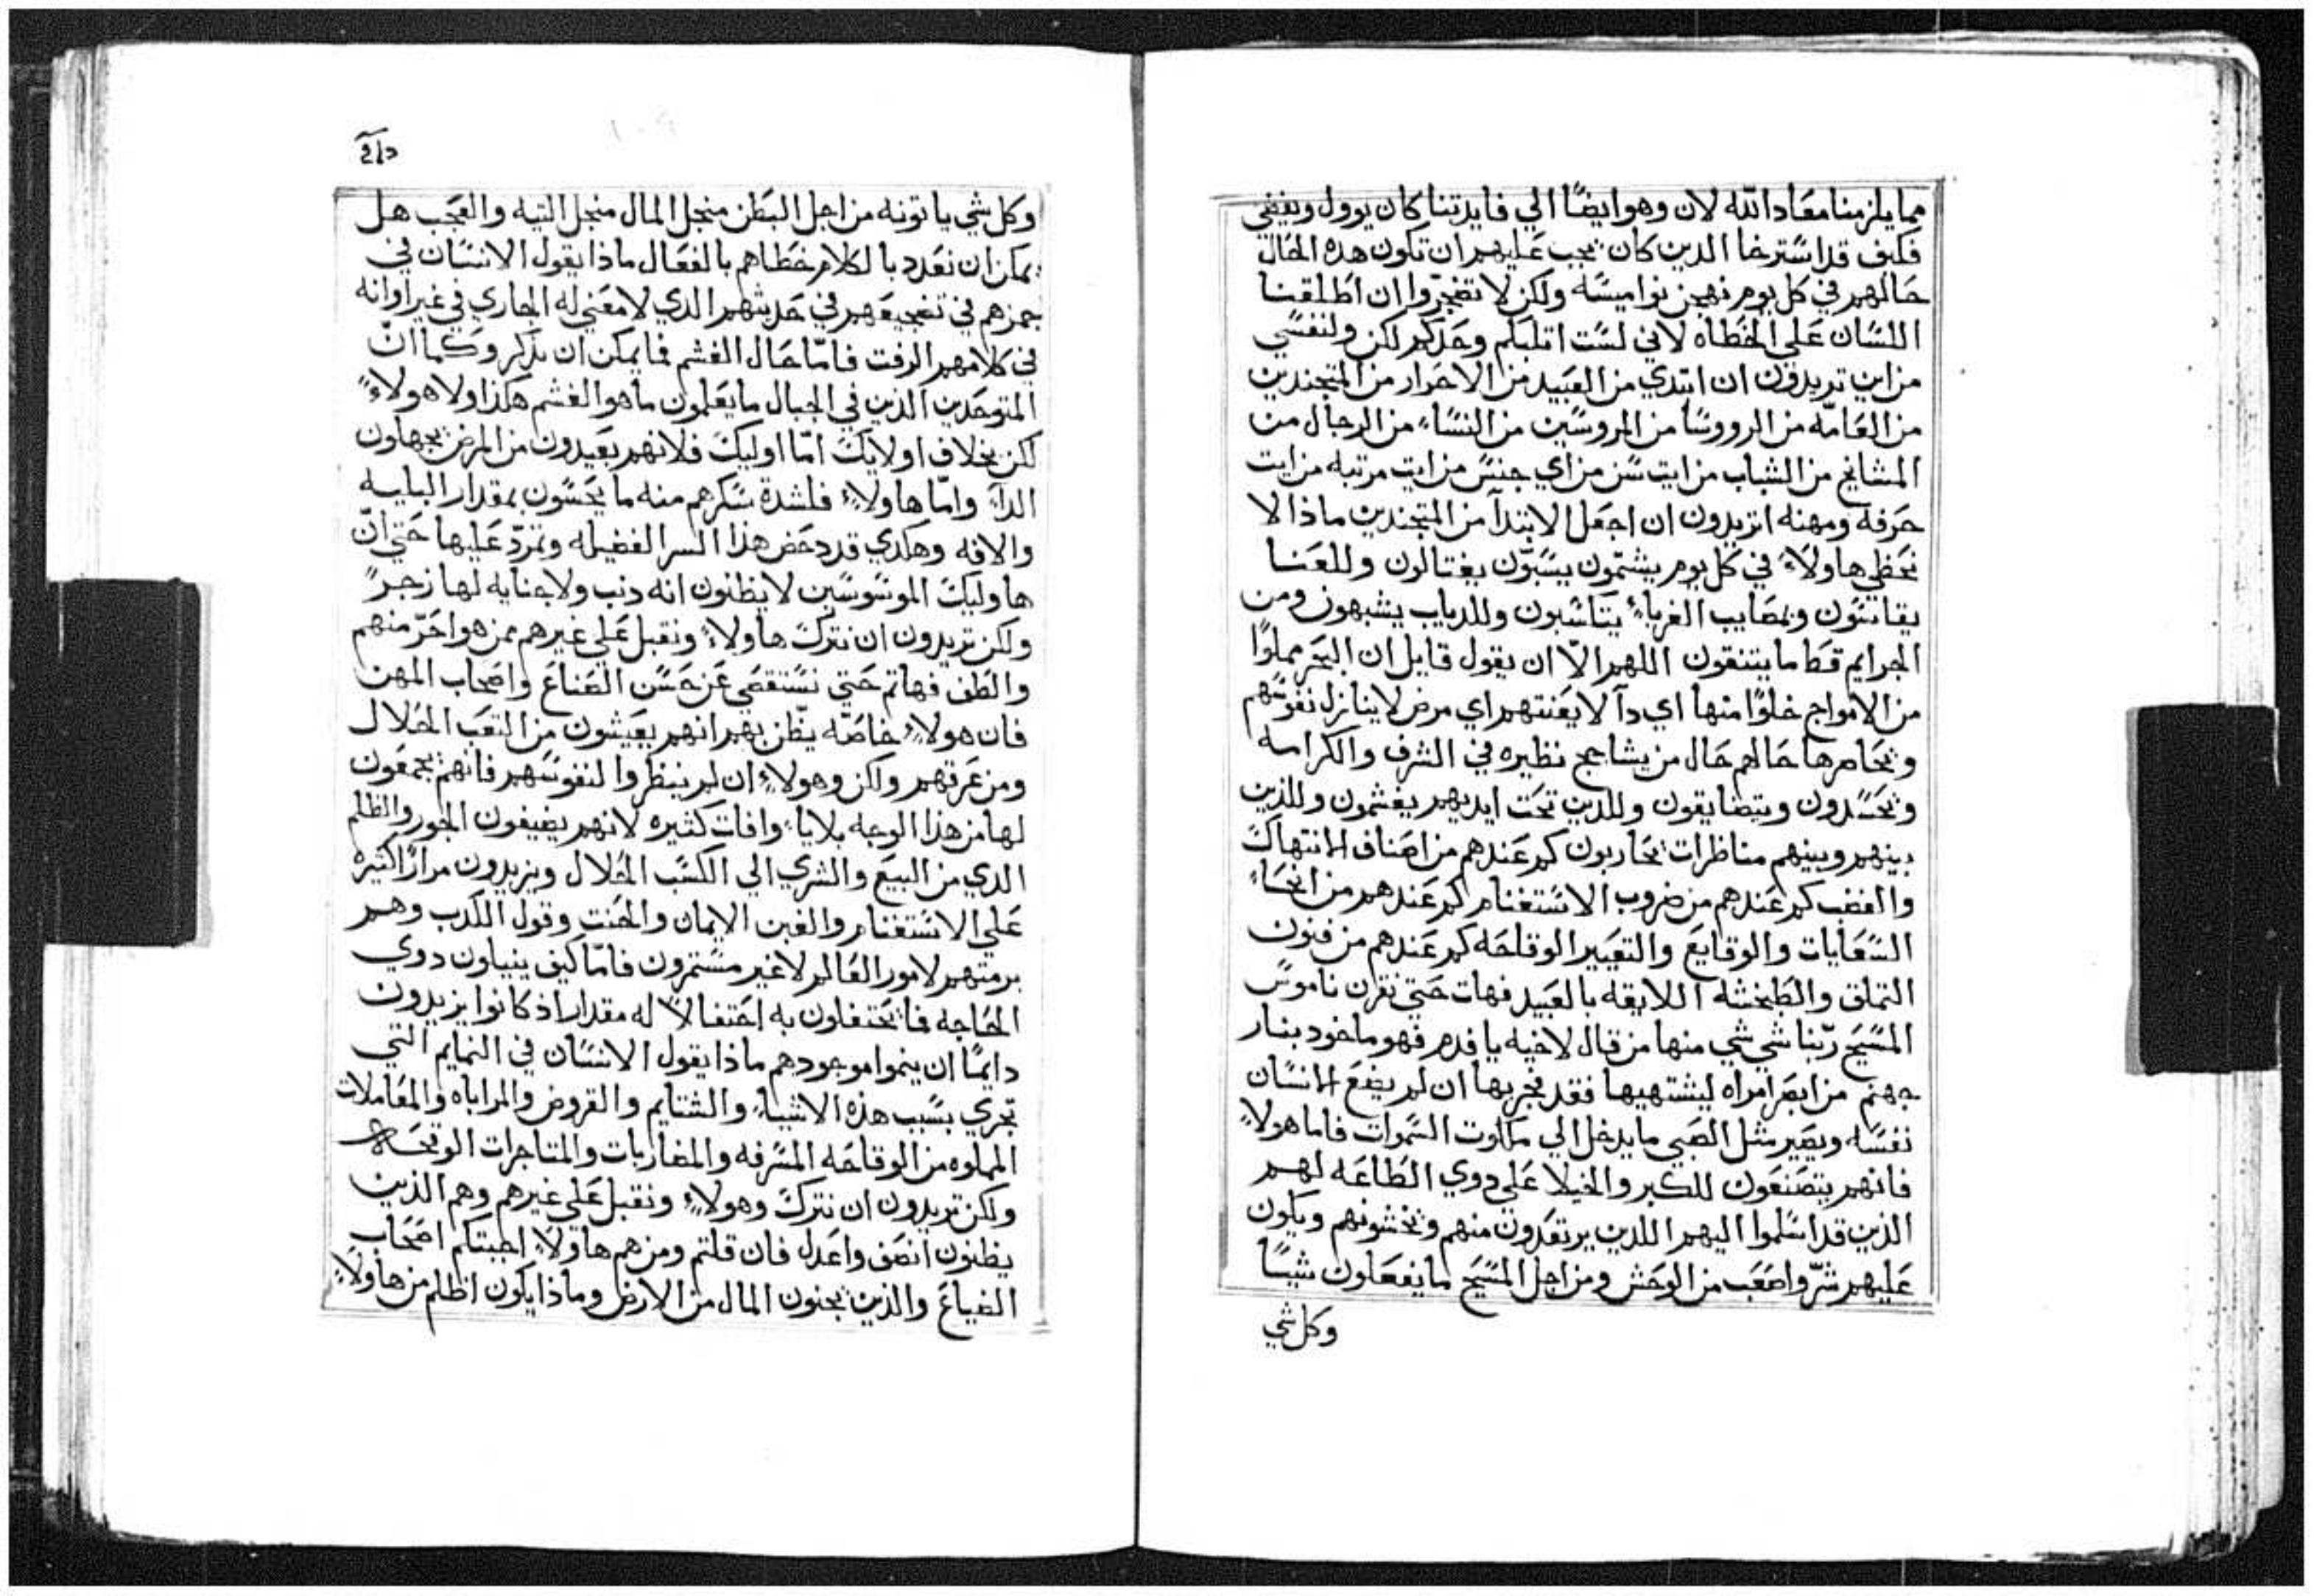 مما يلزمنا معاد الله لان وهو ايضًا الي فايدتنا كان يوول ويفضي
فكيف قد استرخا الدين كان يجب عليهم ان تكون هده الحال
حالهم في كل يوم نهجن نواميسه ولكن لا تضجروا ان اطلقنا
اللسان علي الخطاه لاني لست اتلبكم وحدكم لكن ولنفسي
من اين تريدون ان ابتدي من العبيد من الاحرار من المتجندين
من العامه من الرووسا من المروسين من النساء من الرجال من
المشايخ من الشباب من ايت سن من اي جنس من ايت مرتبه من ايت
حرفه ومهنه اتريدون ان اجعل الابتدآ من المتجندين ماذا لا
نخطي هاولاء في كل يوم يشتمون يسبون يغتالون وللعنا
يقاتنون وبمصايب الغرباء يتاسبون وللدياب يشبهون ومن
الجرايم قط ما يتنقون اللهم الا ان يقول قايل ان البحر مملوًا
من الامواج خلوًا منها اي دآ لا يعنتهم اي مرض لا ينازل نفوسهم
ويخامرها حالهم حال من يشاجح نظيره في الشرف والكرامه
ويحسدون ويتضايقون وللدين تحت ايديهم يغشمون وللذين
بينهم وبينهم مناظرات يحاربون كم عندهم من اصناف الانتهاك
والغضب كم عندهم من ضروب الاستغنام كم عندهم من انحاء
السعايات والوقايع والتعيير الوقاحه كم عندهم من فنون
التملق والطبخشه اللايقه بالعبيد فهات حتي نقرن ناموس
المسيح ربنا شي شي منها من قال لاخيه يا فدم فهو ماخود بنار
جهنم من ابصر امراه ليشتهيها فقد فجر بها ان لم يضع الانسان
نفسه ويصير مثل الصبي ما يدخل الي ملكوت السموات فاما هولاء
فانهم يتصنعون للكبر والخيلا علي دوي الطاعه لهم
الذين قد اسلموا اليهم اللدين يرتعدون منهم ويخشونهم ويكون
عليهم شر واصعب من الوحش ومن اجل المسيح ما يفعلون شيًا
وكل شي
وكل شي ياتونه من اجل البطن منجل المال منجل التيه والعجب هل
يمكن ان نعدد بالكلام خطاهم بالفعال ماذا يقول الانسان في
جمزهم في تضجيعهم في حديثهم الدي لا معني له الجاري في غير اوانه
في كلامهم الرفت فاما حال الغشم فما يمكن ان يذكر وكما ان
المتوحدين الذين في الجبال ما يعلمون ما هو الغشم هكذا ولا هولاء
لكن بخلاف اولايك اما اوليك فلانهم بعيدون من المرض يجهلون
الداء واما هاولاء فلشدة سكرهم منه ما يحسون بمقدار البليه
والافه وهكدي قد دحض هذا السر الفضيله وتمرد عليها حتي ان
هاوليك الموسوسين لا يظنون انه دنب ولا جنايه لها زجرً
ولكن تريدون ان نترك هاولاء ونقبل علي غيرهم ممن هو احر منهم
والطف فهاتم حتي نستقصي عن حسن الصناع واصحاب المهن
فان هولاء خاصه يظن بهم انهم يعيشون من التعب الحلال
ومن عرقهم ولكن وهولاء ان لم ينظروا لنفوسهم فانهم يجمعون
لها من هذا الوجه بلايا وافات كثيره لانهم يضيفون الجور والظلم
الدي من البيع والشري الي الكسب الحلال ويزيدون مرارًا كثيره
علي الاستغنام والغبن الايمان والحنت وقول الكدب وهم
برمتهم لامور العالم لا غير مستمرون فاما كيف ينيلون دوي
الحاجه فما يحتفلون به احتفالاً له مقدار اذ كانوا يزيدون
دايمًا ان ينموا موجودهم ماذا يقول الانسان في النمايم التي
تجري بسبب هذه الاشياء والشتايم والقروض والمراباه والمعاملات
المملوه من الوقاحه المسرفه والمضاربات والمتاجرات الوقحه
ولكن تريدون ان نترك وهولاء ونقبل علي غيرهم وهم الذين
يظنون انصف واعدل فان قلتم ومن هم هاولاء اجبتكم اصحاب
الضياع والذين يجنون المال من الارض وماذا يكون اظلم من هاولاء